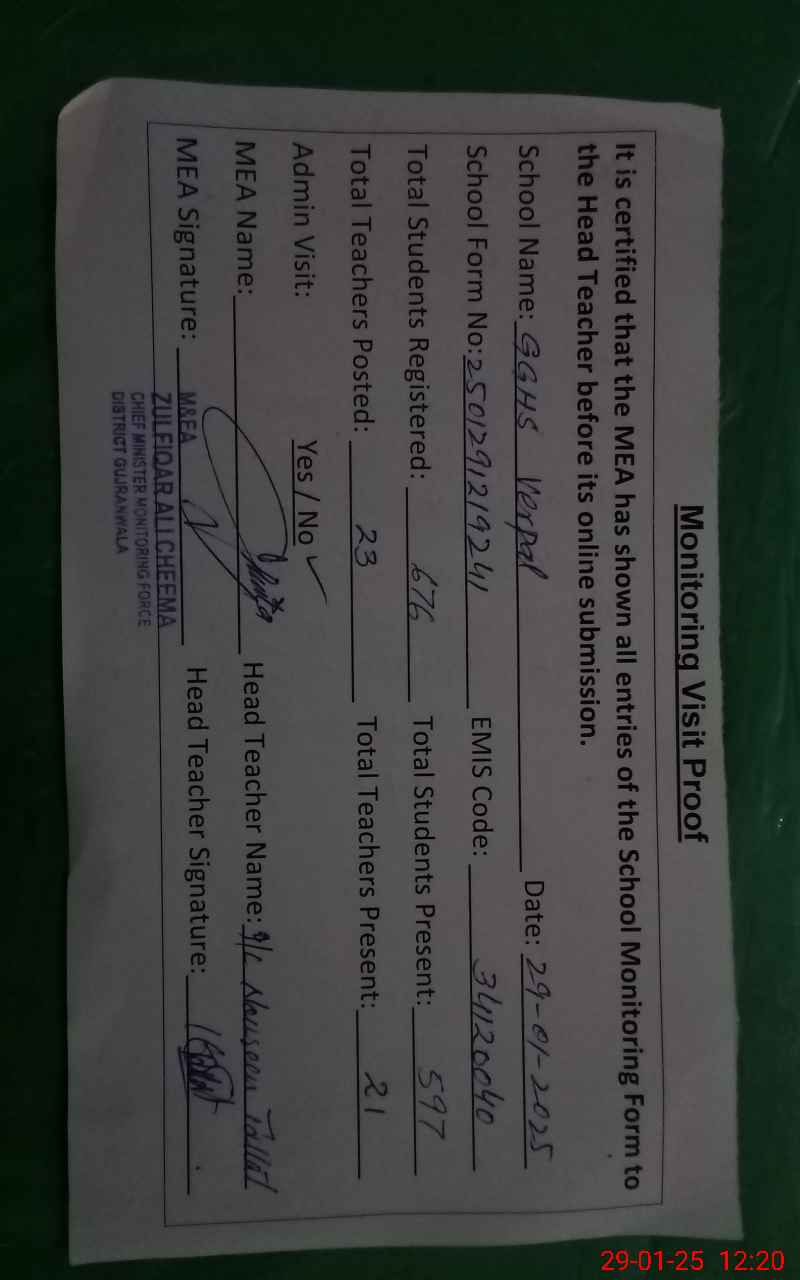 Monitoring Visit Proof
It is certified that the MEA has shown all entries of the School Monitoring Form to
the Head Teacher before its online submission.
School Name: GGHS Verpal Date: 29-01-2025
School Form No: 250129121924 EMIS Code: 34120040
Total Students Registered: 676 Total Students Present: 597
Total Teachers Posted: 23 Total Teachers Present: 21
Admin Visit: Yes / No ✓
MEA Name: Head Teacher Name: I/C Nouseen Tallat
MEA Signature: Head Teacher Signature:
M&EA
ZULFIQAR ALI CHEEMA
CHIEF MINISTER MONITORING FORCE
DISTRICT GUJRANWALA
29-01-25 12:20